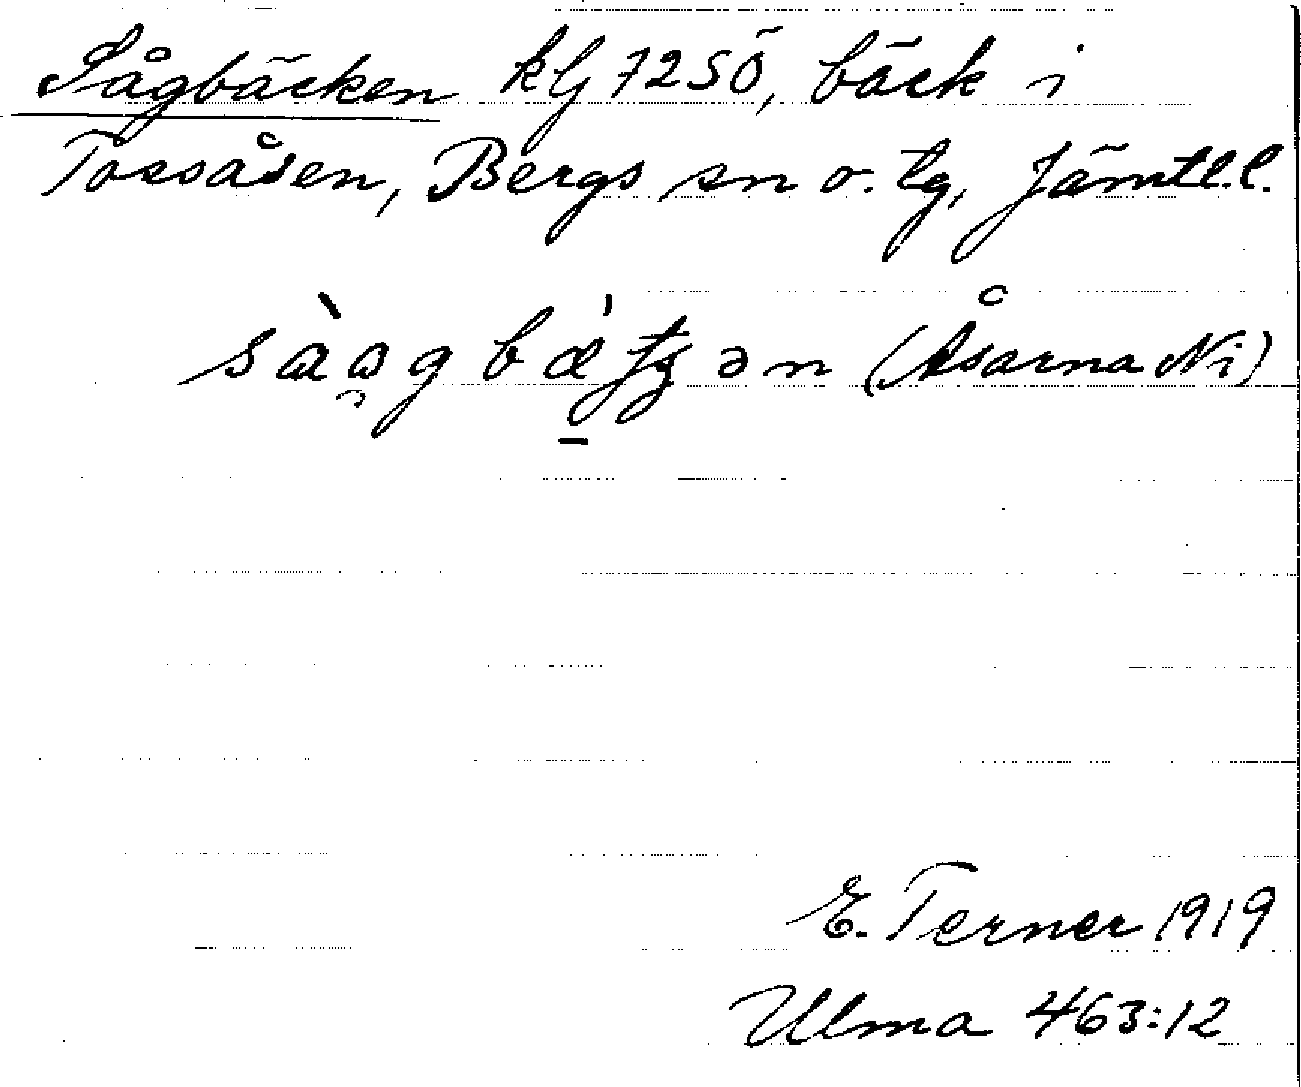 Sågbäcken klj 725Ö, bäck i
Tossåsen, Bergs sn o. tg, Jämtl.l.
(Åsarna Ni)
E. Terner 1919
Ulma 463:12